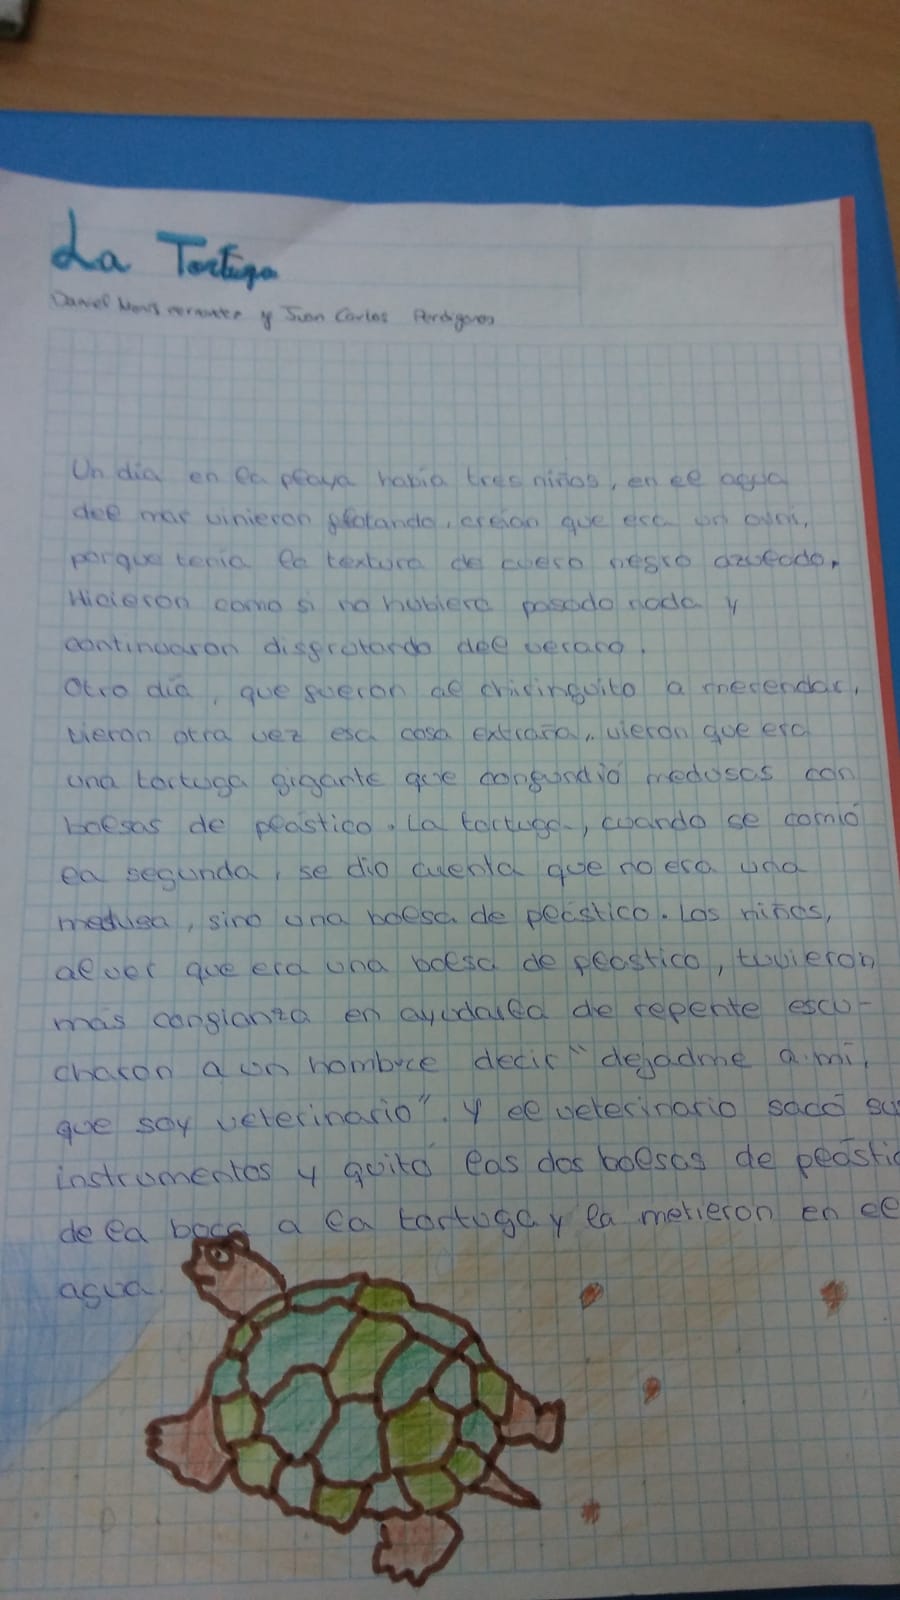 La Tortuga
Daniel y Juan Carlos Perdigones
Un día en la playa había tres niños, en el agua
del mar vinieron flotando, creían que era un ovni,
porque tenía la textura de cuero negro azulado.
Hicieron como si no hubiera pasado nada y
continuaron disfrutando del verano.
Otro día, que fueron al chiringuito a merendar,
vieron otra vez esa cosa extraña, vieron que era
una tortuga gigante que confundió medusas con
bolsas de plástico. La tortuga, cuando se comió
la segunda, se dio cuenta que no era una
medusa, sino una bolsa de plástico. Los niños,
al ver que era una bolsa de plástico, tuvieron
más confianza en ayudarla de repente escu-
charon a un hombre decir "dejadme a mí,
que soy veterinario". Y el veterinario sacó sus
instrumentos y quitó las dos bolsas de plástic
de la boca a la tortuga y la metieron en el
agua.